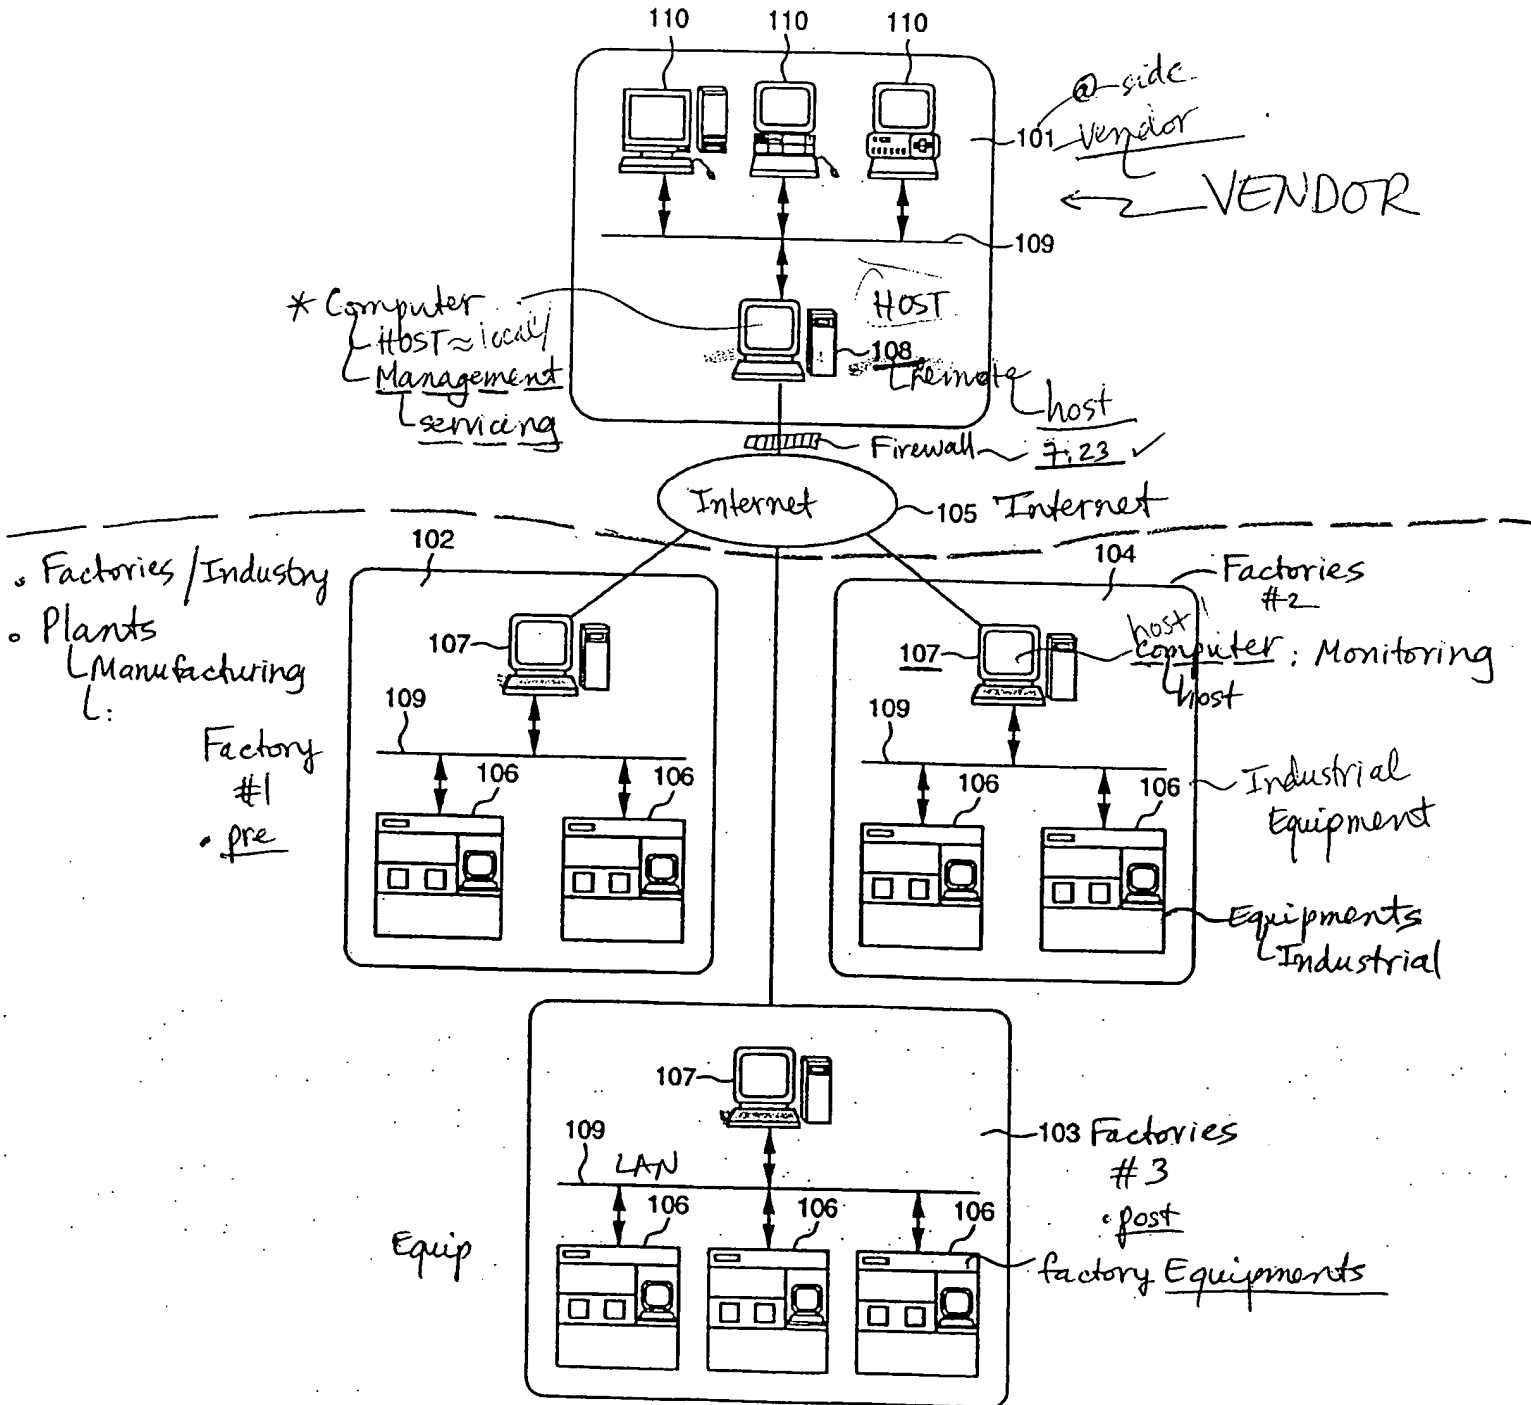 110 110 110
@ side
101 vendor
VENDOR
109
* Computer
HOST ≈ local/
Management
servicing
HOST
108
remote
host
Firewall 7:23 ✓
Internet
105 Internet
102
104
• Factories/Industry
• Plants
Manufacturing
:
Factory
#1
• pre
Factories
#2
107
107
host
computer : Monitoring
host
109
109
106 106
106 106
Industrial
Equipment
Equipments
Industrial
107
103 Factories
#3
• post
109
LAN
106 106 106
Equip
factory Equipments